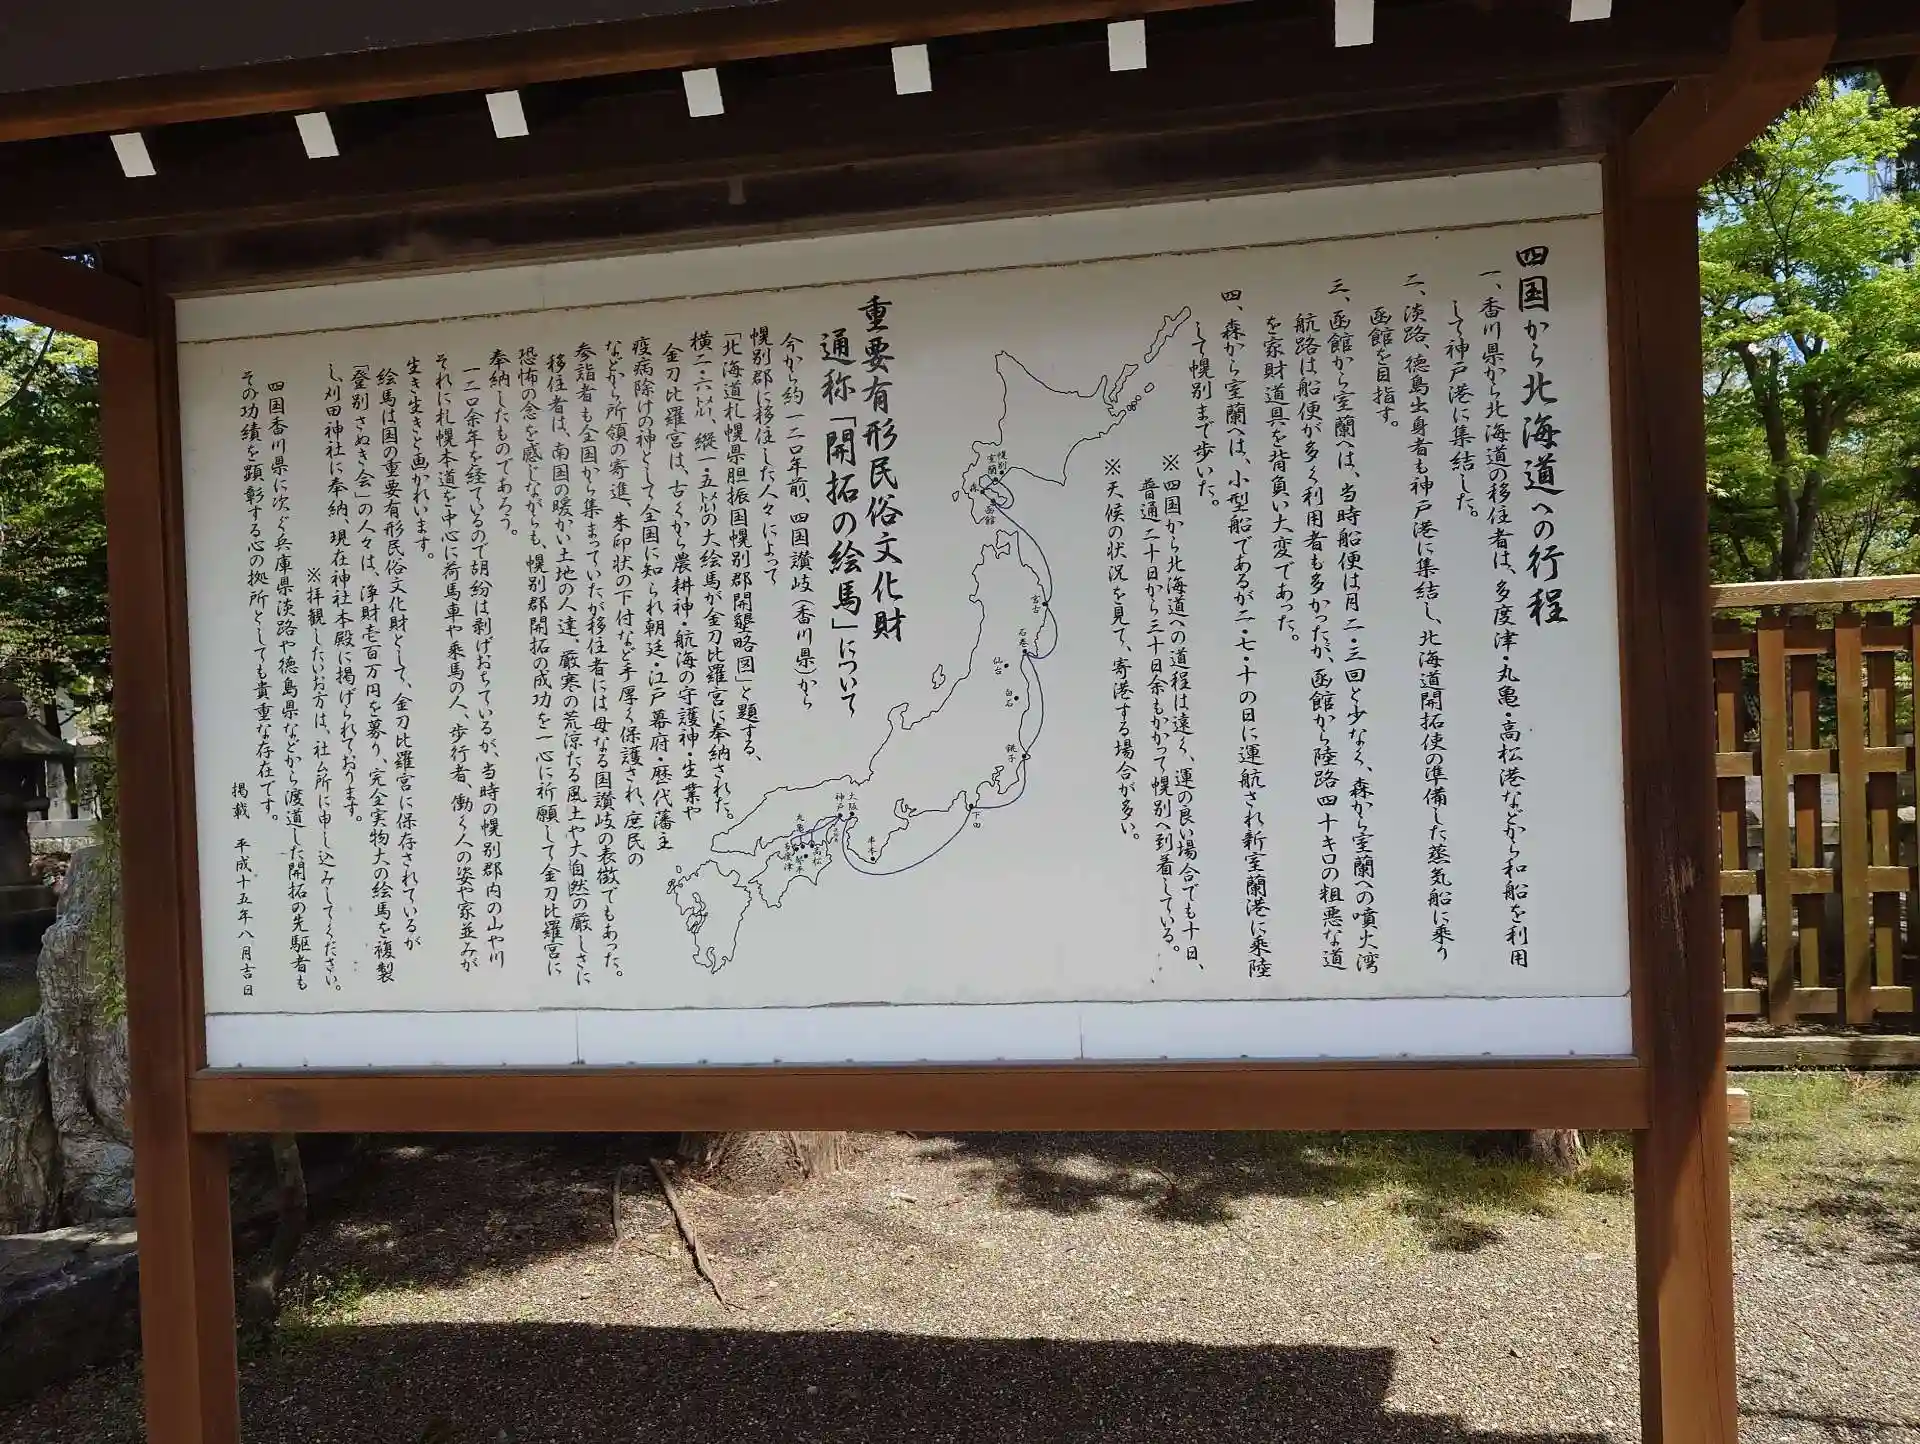 四国から北海道への行程
一、香川県から北海道の移住者は、多度津・丸亀・高松港などから和船を利用
して神戸港に集結した。
二、淡路、徳島出身者も神戸港に集結し、北海道開拓使の準備した蒸気船に乗り
函館を目指す。
三、函館から室蘭へは、当時船便は月二・三回と少なく、森から室蘭への噴火湾
航路は船便が多く利用者も多かったが、函館から陸路四十キロの粗悪な道
を家財道具を背負い大変であった。
四、森から室蘭へは、小型船であるが二・七・十の日に運航され新室蘭港に乗陸
して幌別まで歩いた。
※四国から北海道への道程は遠く、運の良い場合でも十日、
普通二十日から三十日余もかかって幌別へ到着している。
※天候の状況を見て、寄港する場合が多い。
幌別
室蘭
森
函館
宮古
石巻
仙台
白石
銚子
下田
大阪
神戸
串本
丸亀
高松
琴平
多度津
重要有形民俗文化財
通称「開拓の絵馬」について
今から約一二〇年前、四国讃岐(香川県)から
幌別郡に移住した人々によって
「北海道札幌県胆振国幌別郡開墾略図」と題する、
横二・六㍍、縦一・五㍍の大絵馬が金刀比羅宮に奉納された。
金刀比羅宮は、古くから農耕神・航海の守護神・生業や
疫病除けの神として全国に知られ朝廷・江戸幕府・歴代藩主
などから所領の寄進、朱印状の下付など手厚く保護され、庶民の
参詣者も全国から集まっていたが移住者には母なる国讃岐の表徴でもあった。
移住者は、南国の暖かい土地の人達、厳寒の荒涼たる風土や大自然の厳しさに
恐怖の念を感じながらも、幌別郡開拓の成功を一心に祈願して金刀比羅宮に
奉納したものであろう。
一二〇余年を経ているので胡紛は剥げおちているが、当時の幌別郡内の山や川
それに札幌本道を中心に荷馬車や乗馬の人、歩行者、働く人の姿や家並みが
生き生きと画かれいます。
絵馬は国の重要有形民俗文化財として、金刀比羅宮に保存されているが
「登別さぬき会」の人々は、浄財壱百万円を募り、完全実物大の絵馬を複製
し刈田神社に奉納、現在神社本殿に掲げられております。
※拝観したいお方は、社ム所に申し込みしてください。
四国香川県に次ぐ兵庫県淡路や徳島県などから渡道した開拓の先駆者も
その功績を顕彰する心の拠所としても貴重な存在です。
掲載　平成十五年八月吉日